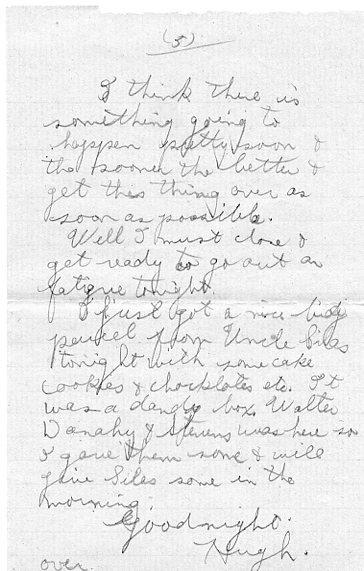 (5)
I think there is
something going to
happen pretty soon &
the sooner the better &
get this thing over as
soon as possible.
Well I must close &
get ready to go out on
fatigue tonight.
I just got a nice big
parcel from Uncle
tonight with some cake
cookies & chocklotes etc. It
was a dandy box, Walter
Danahy & Stevens was here so
I gave them some & will
give Siles some in the
morning.
Goodnight.
Hugh.
over.